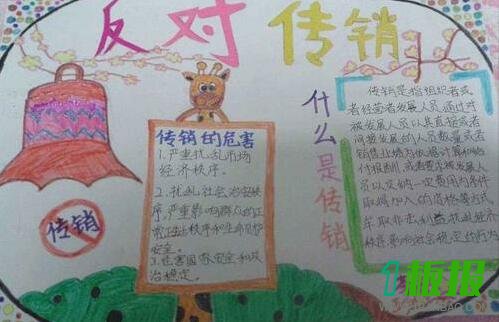 反对传销
传销的危害
1.严重扰乱市场
经济秩序。
2.扰乱社会治安秩
序,严重影响群众的正
常生活秩序和生命财产
安全。
3.危害国家安全和政
治稳定。
传销
什么是传销
传销是指组织者或
者经营者发展人员,通过对
被发展人员以其直接或者
间接发展的人员数量或者
销售业绩为依据计算和给
付报酬,或者要求被发展人
员以交纳一定费用为条件
取得加入的资格等方式
牟取非法利益,扰乱经济
秩序,影响社会稳定的行为
板报